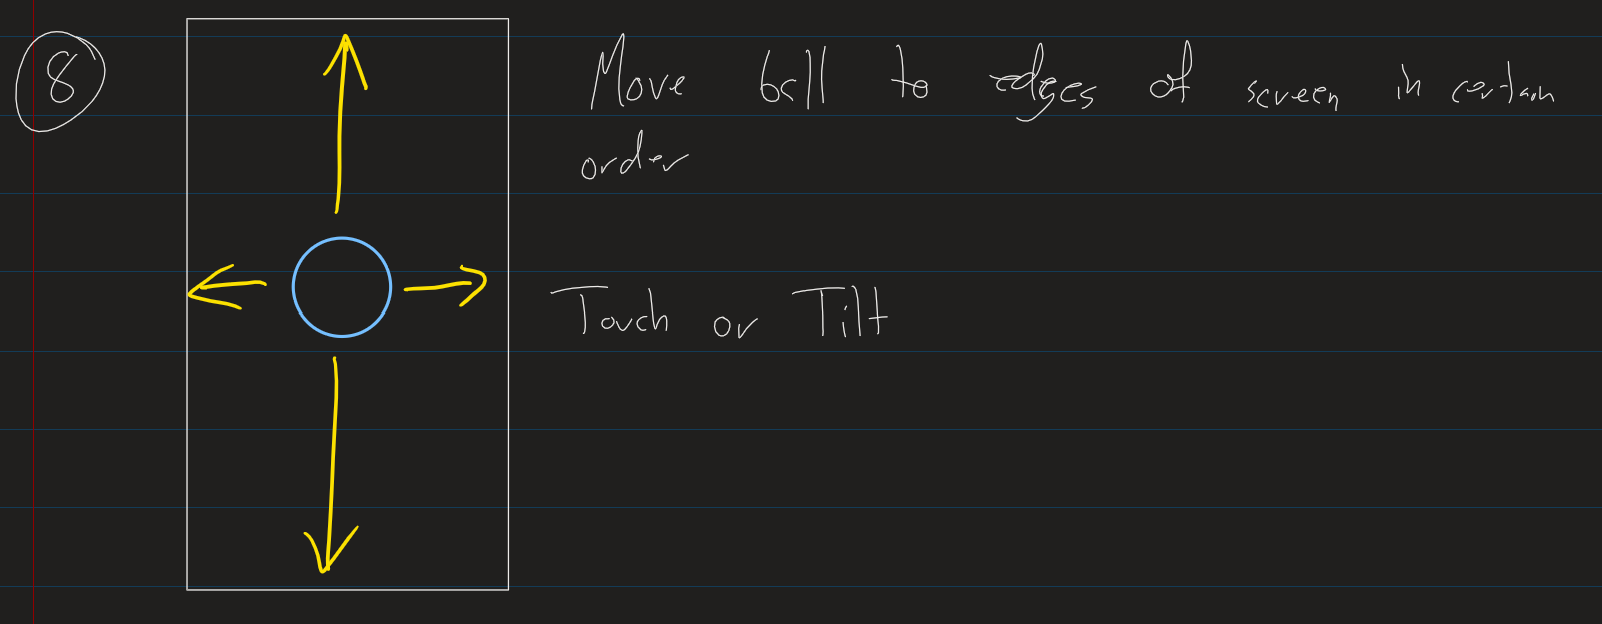 8
Move ball to edges of screen in certain
order
Touch or Tilt